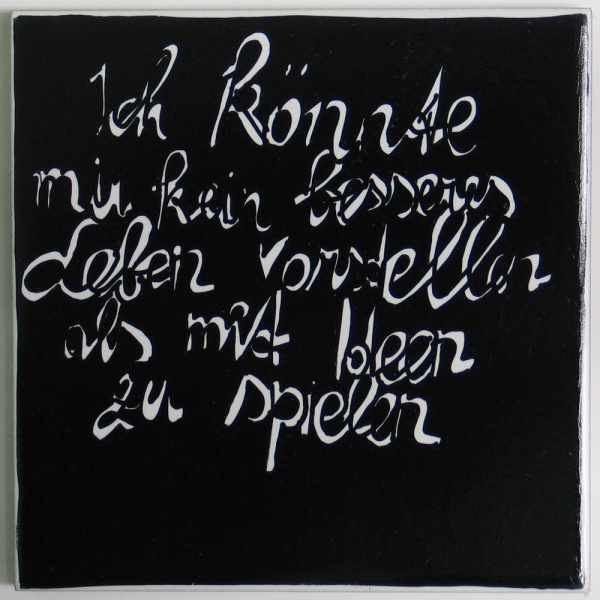 Ich könnte
mir kein besseres
Leben vorstellen
als mit Ideen
zu spielen